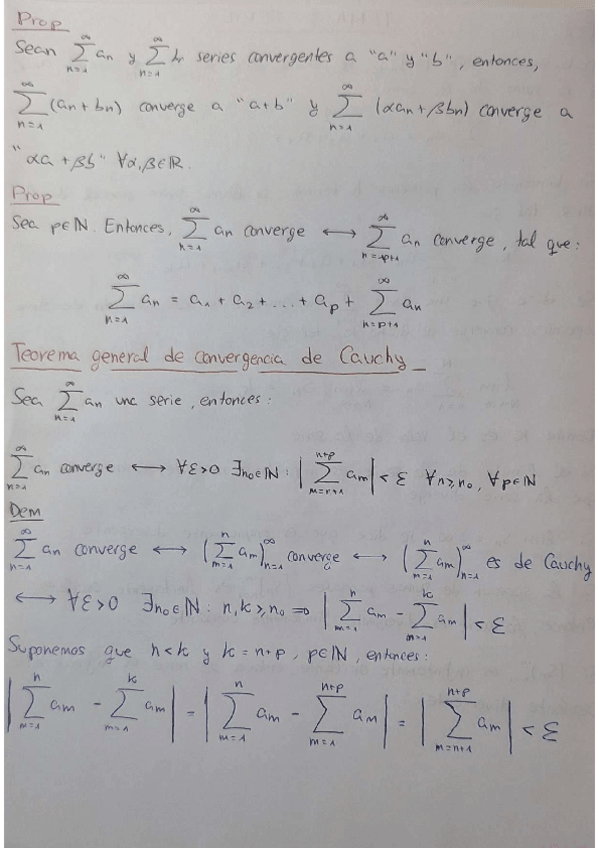 Prop
Sean ∑_{n=1}^{∞} an y ∑_{n=1}^{∞} bn series convergentes a "a" y "b", entonces,
∑_{n=1}^{∞} (an + bn) converge a "a+b" y ∑_{n=1}^{∞} (αan + βbn) converge a
"αa + βb" ∀α,β∈ℝ.
Prop
Sea p∈ℕ. Entonces, ∑_{n=1}^{∞} an converge ⟷ ∑_{n=p+1}^{∞} an converge, tal que:
∑_{n=1}^{∞} an = a1 + a2 + ... + ap + ∑_{n=p+1}^{∞} an
Teorema general de convergencia de Cauchy
Sea ∑_{n=1}^{∞} an una serie, entonces:
∑_{n=1}^{∞} an converge ⟷ ∀ε>0 ∃n0∈ℕ: |∑_{m=n+1}^{n+p} am| < ε ∀n≥n0, ∀p∈ℕ
Dem
∑_{n=1}^{∞} an converge ⟷ (∑_{m=1}^{n} am)_{n=1}^{∞} converge ⟷ (∑_{m=1}^{n} am)_{n=1}^{∞} es de Cauchy
⟷ ∀ε>0 ∃n0∈ℕ: n,k≥n0 ⇒ |∑_{m=1}^{n} am - ∑_{m=1}^{k} am| < ε
Suponemos que n<k y k=n+p, p∈ℕ, entonces:
|∑_{m=1}^{n} am - ∑_{m=1}^{k} am| = |∑_{m=1}^{n} am - ∑_{m=1}^{n+p} am| = |∑_{m=n+1}^{n+p} am| < ε